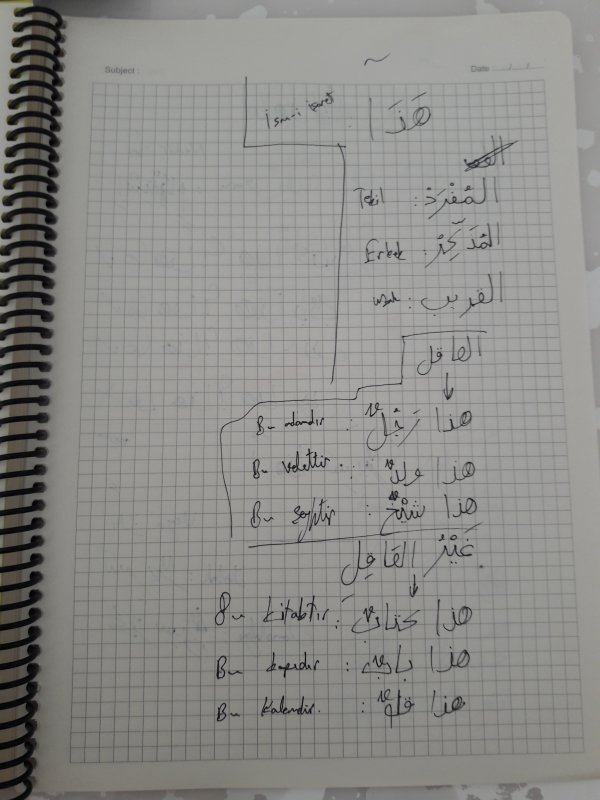 Subject :
Date ..../..../....
هَذَا : İsm-i işaret
المُفْرَدْ : Tekil
المُذَكَّرْ : Erkek
القريب :
العاقل
هذا رَجُلٌ : Bu adamdır
هذا ولدٌ : Bu veledtir
هذا شَيْخٌ : Bu şeyhtir
غَيْرُ العَاقِلِ
هذا كتابٌ : Bu kitabtır
هذا بابٌ : Bu kapıdır
هذا قلمٌ : Bu kalemdir.